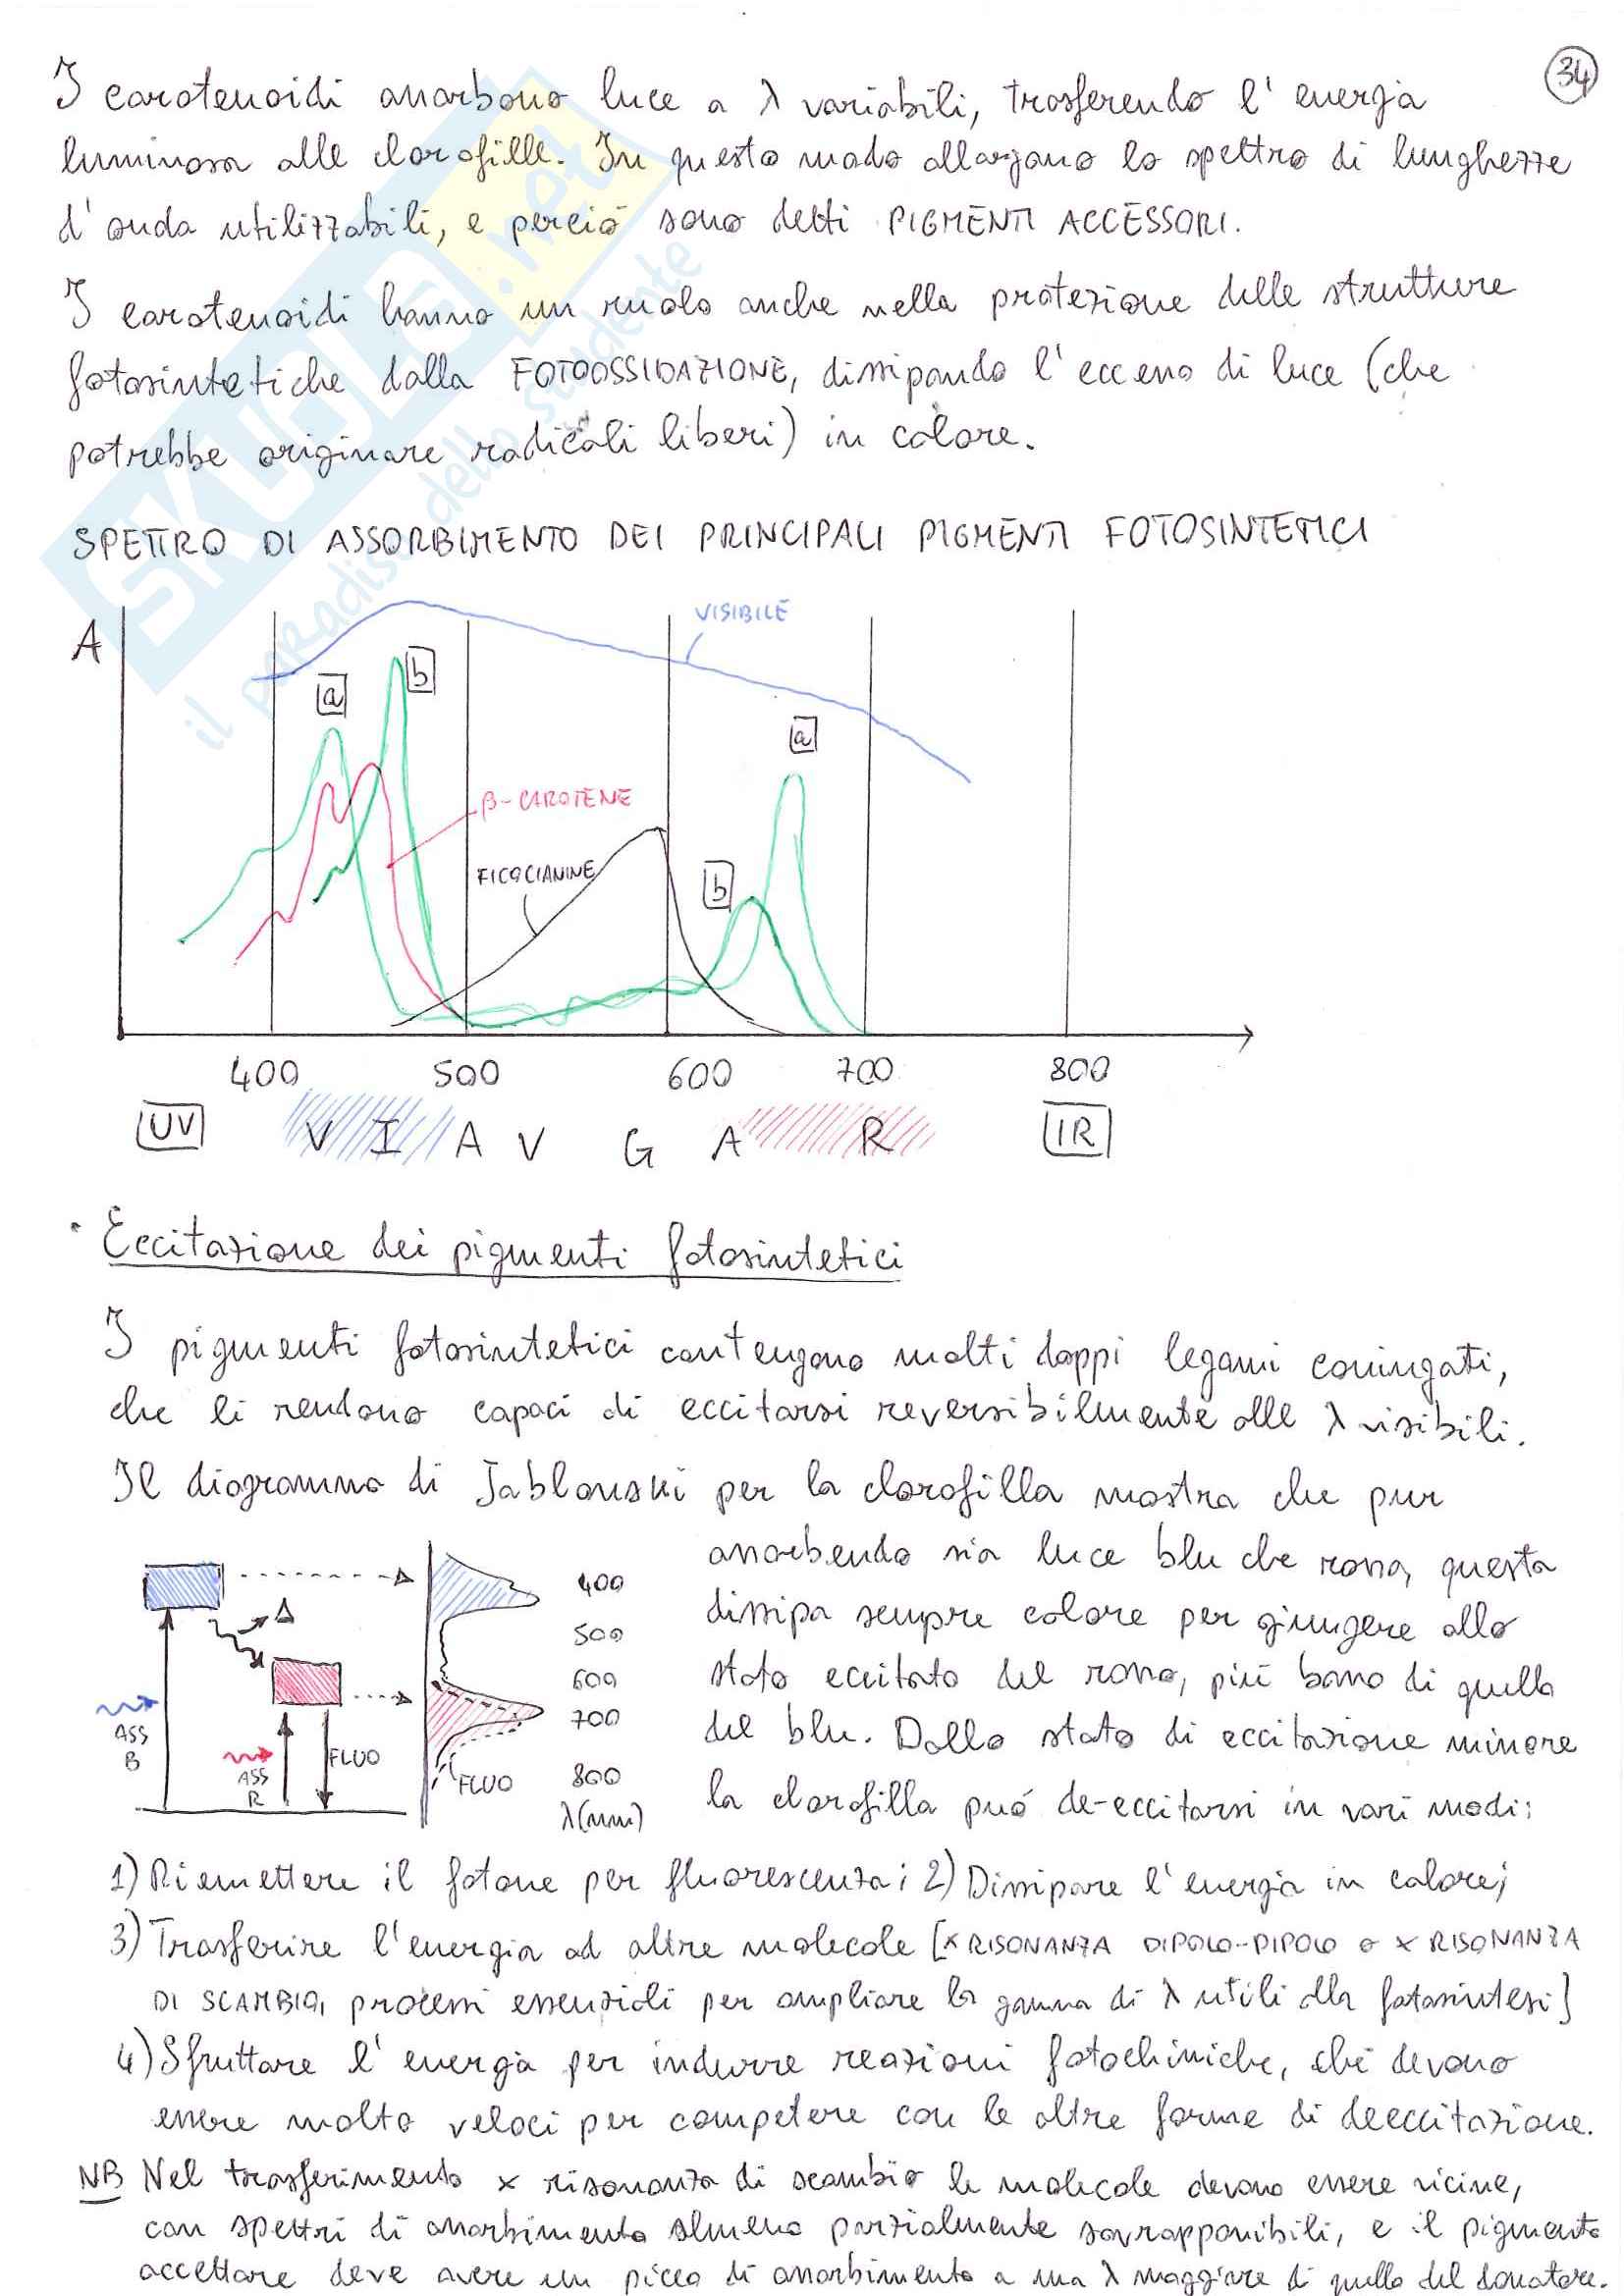 34
I carotenoidi assorbono luce a λ variabili, trasferendo l'energia
luminosa alle clorofille. In questo modo allargano lo spettro di lunghezze
d'onda utilizzabili, e perciò sono detti PIGMENTI ACCESSORI.
I carotenoidi hanno un ruolo anche nella protezione delle strutture
fotosintetiche dalla FOTOOSSIDAZIONE, dissipando l'eccesso di luce (che
potrebbe originare radicali liberi) in calore.
SKUOLA.net
il paradiso dello studente
SPETTRO DI ASSORBIMENTO DEI PRINCIPALI PIGMENTI FOTOSINTETICI
A
VISIBILE
a
b
a
β-CAROTENE
FICOCIANINE
b
400 500 600 700 800
UV V I A V G A R IR
• Eccitazione dei pigmenti fotosintetici
I pigmenti fotosintetici contengono molti doppi legami coniugati,
che li rendono capaci di eccitarsi reversibilmente alle λ visibili.
Il diagramma di Jablonski per la clorofilla mostra che pur
assorbendo sia luce blu che rossa, questa
dissipa sempre calore per giungere allo
stato eccitato del rosso, più basso di quello
del blu. Dallo stato di eccitazione minore
la clorofilla può de-eccitarsi in vari modi:
Δ
ASS
B
ASS
R
FLUO
FLUO
400
500
600
700
800
λ(nm)
1) Riemettere il fotone per fluorescenza; 2) Dissipare l'energia in calore;
3) Trasferire l'energia ad altre molecole [x RISONANZA DIPOLO-DIPOLO o x RISONANZA
DI SCAMBIO, processi essenziali per ampliare la gamma di λ utili alla fotosintesi]
4) Sfruttare l'energia per indurre reazioni fotochimiche, che devono
essere molto veloci per competere con le altre forme di deeccitazione.
NB Nel trasferimento x risonanza di scambio le molecole devono essere vicine,
con spettri di assorbimento almeno parzialmente sovrapponibili, e il pigmento
accettore deve avere un picco di assorbimento a una λ maggiore di quello del donatore.